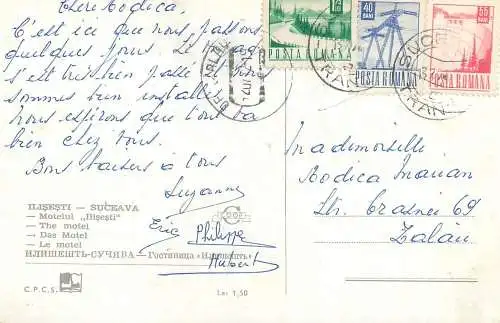 Chère Rodica,
C'est ici que nous passons
quelques jours. Le
s'est très bien passé
sommes bien installés
nous espérons que tout va
bien chez vous.
Bons baisers à tous
Suzanne
Eric Philippe
Hubert
ILIȘEȘTI — SUCEAVA
— Motelul „Ilișești”
— The motel
— Das Motel
— Le motel
ИЛИШЕШТЬ-СУЧАВА — Гостиница «Илишешть»
C.P.C.S.
Lei 1,50
BANI
POSTA ROMANA
40 BANI
POSTA ROMANA
55 BANI
POSTA ROMANA
SUCEAVA
TRANZIT
Mademoiselle
Rodica Marian
Str. Crasnei 69
Zalău